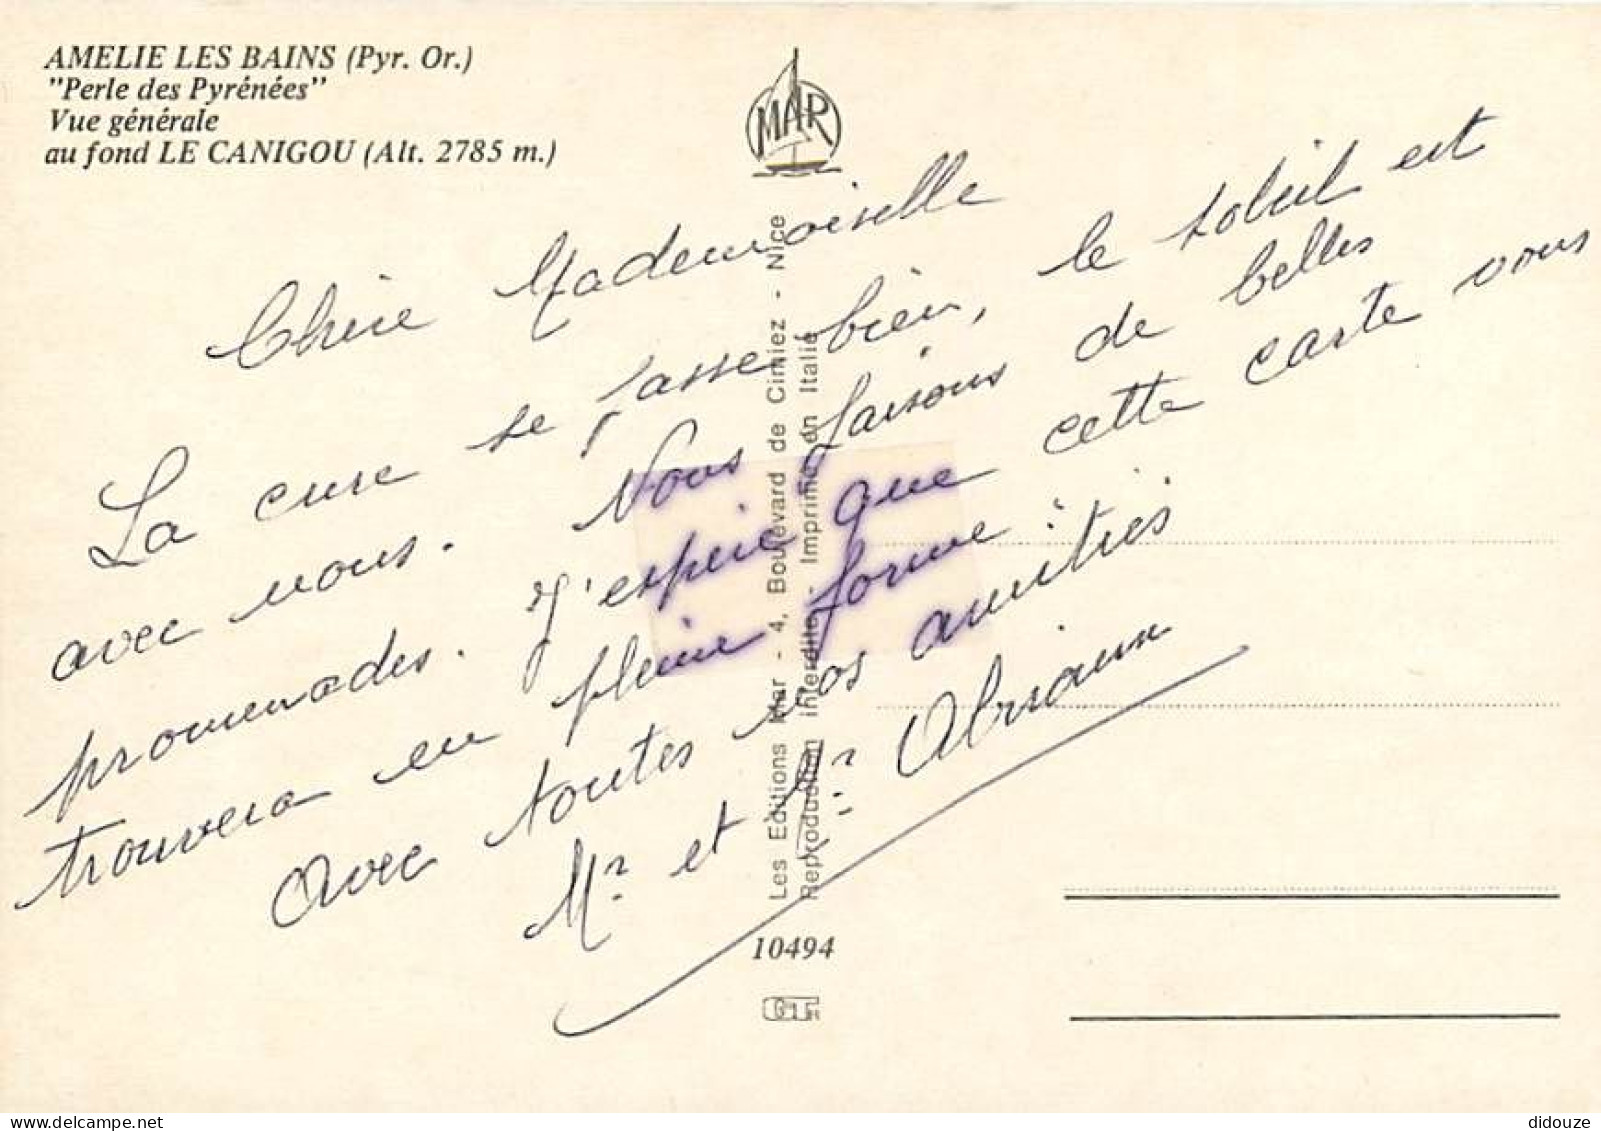 AMELIE LES BAINS (Pyr. Or.)
"Perle des Pyrénées"
Vue générale
au fond LE CANIGOU (Alt. 2785 m.)
MAR
Chère Mademoiselle
La cure se passe bien, le soleil est
avec nous. Nous faisons de belles
promenades. J'espère que cette carte vous
trouvera en pleine forme
Avec toutes nos amitiés
Mr et Mr
Les Editions Mar - 4, Boulevard de Cimiez - Nice
Reproduction interdite - Imprimé en Italie
10494
didouze